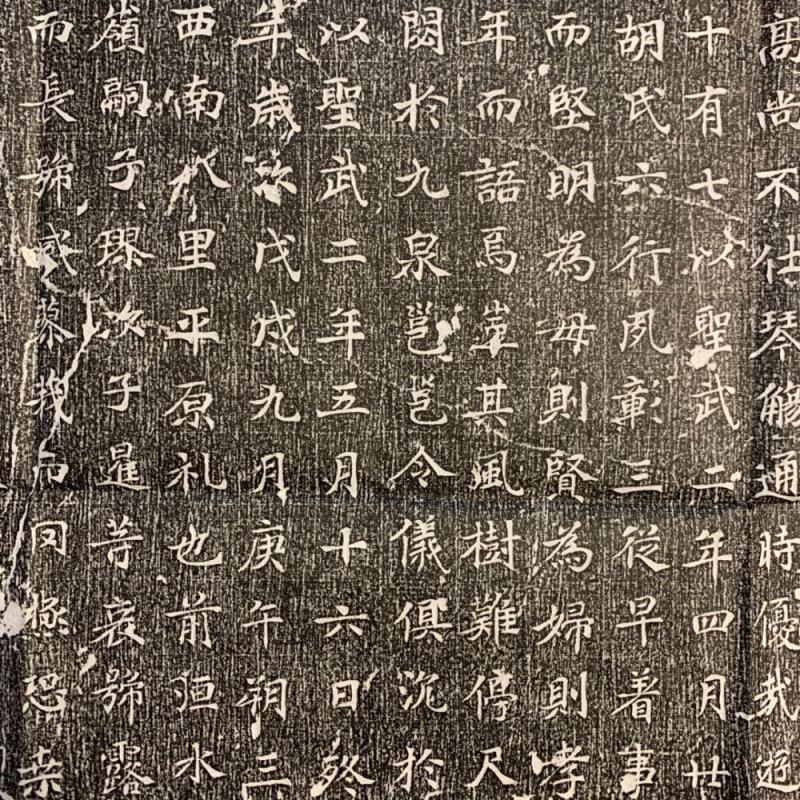 高尚不仕琴觴通時優哉遊
十有七以聖武二年四月廿
胡氏六行夙彰三從早着事
而堅明為母則賢為婦則孝
年而語焉豈其風樹難停尺
閟於九泉邕邕令儀俱沉於
以聖武二年五月十六日終
年歲次戊戌九月庚午朔三
西南八里平原礼也前洹水
嶺嗣子璆次子暹等哀號露
而長號感蓼莪而罔極恐桒